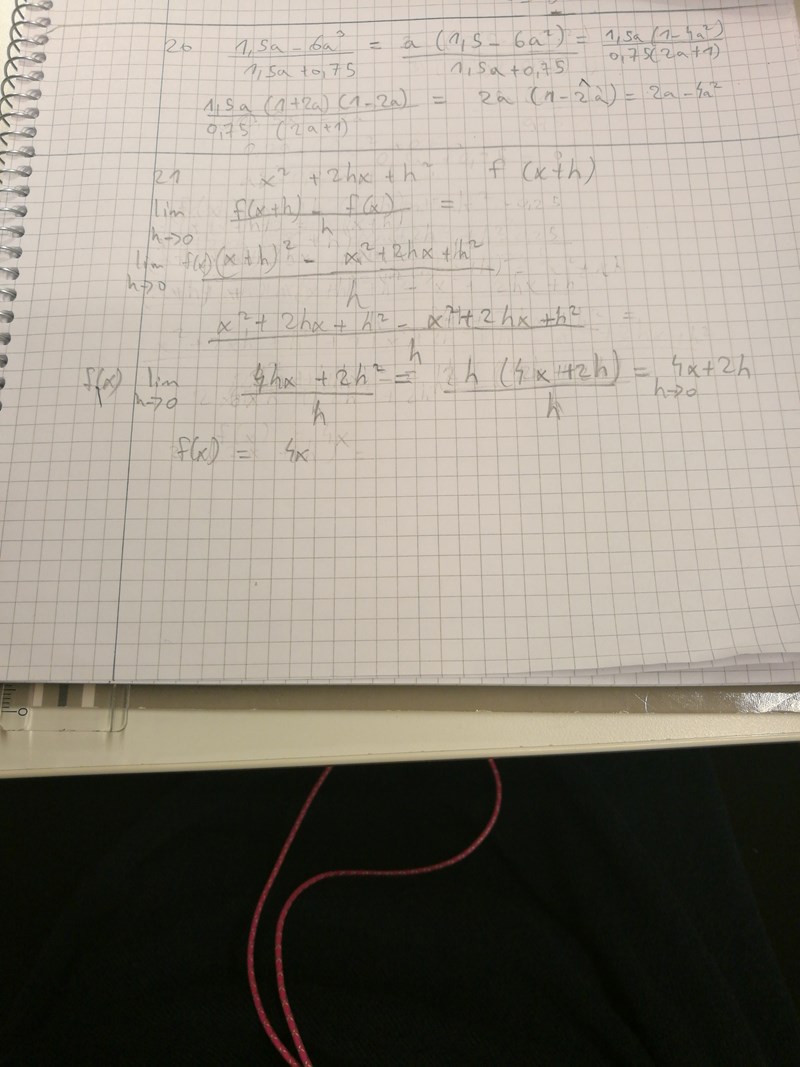 20 (1,5a - 6a³)/(1,5a + 0,75) = a (1,5 - 6a²)/(1,5a + 0,75) = 1,5a (1 - 4a²)/0,75(2a+1)
1,5a (1+2a) (1-2a)/0,75 (2a+1) = 2a (1-2a) = 2a - 4a²
21 x² + 2hx + h² f (x+h)
lim h→0 (f(x+h) - f(x))/h =
lim h→0 f(x) ((x+h)² - x² + 2hx + h²)/h
(x² + 2hx + h² - x² + 2hx + h²)/h =
f(x) lim h→0 (4hx + 2h²)/h = h (4x + 2h)/h = 4x + 2h h→0
f(x) = 4x